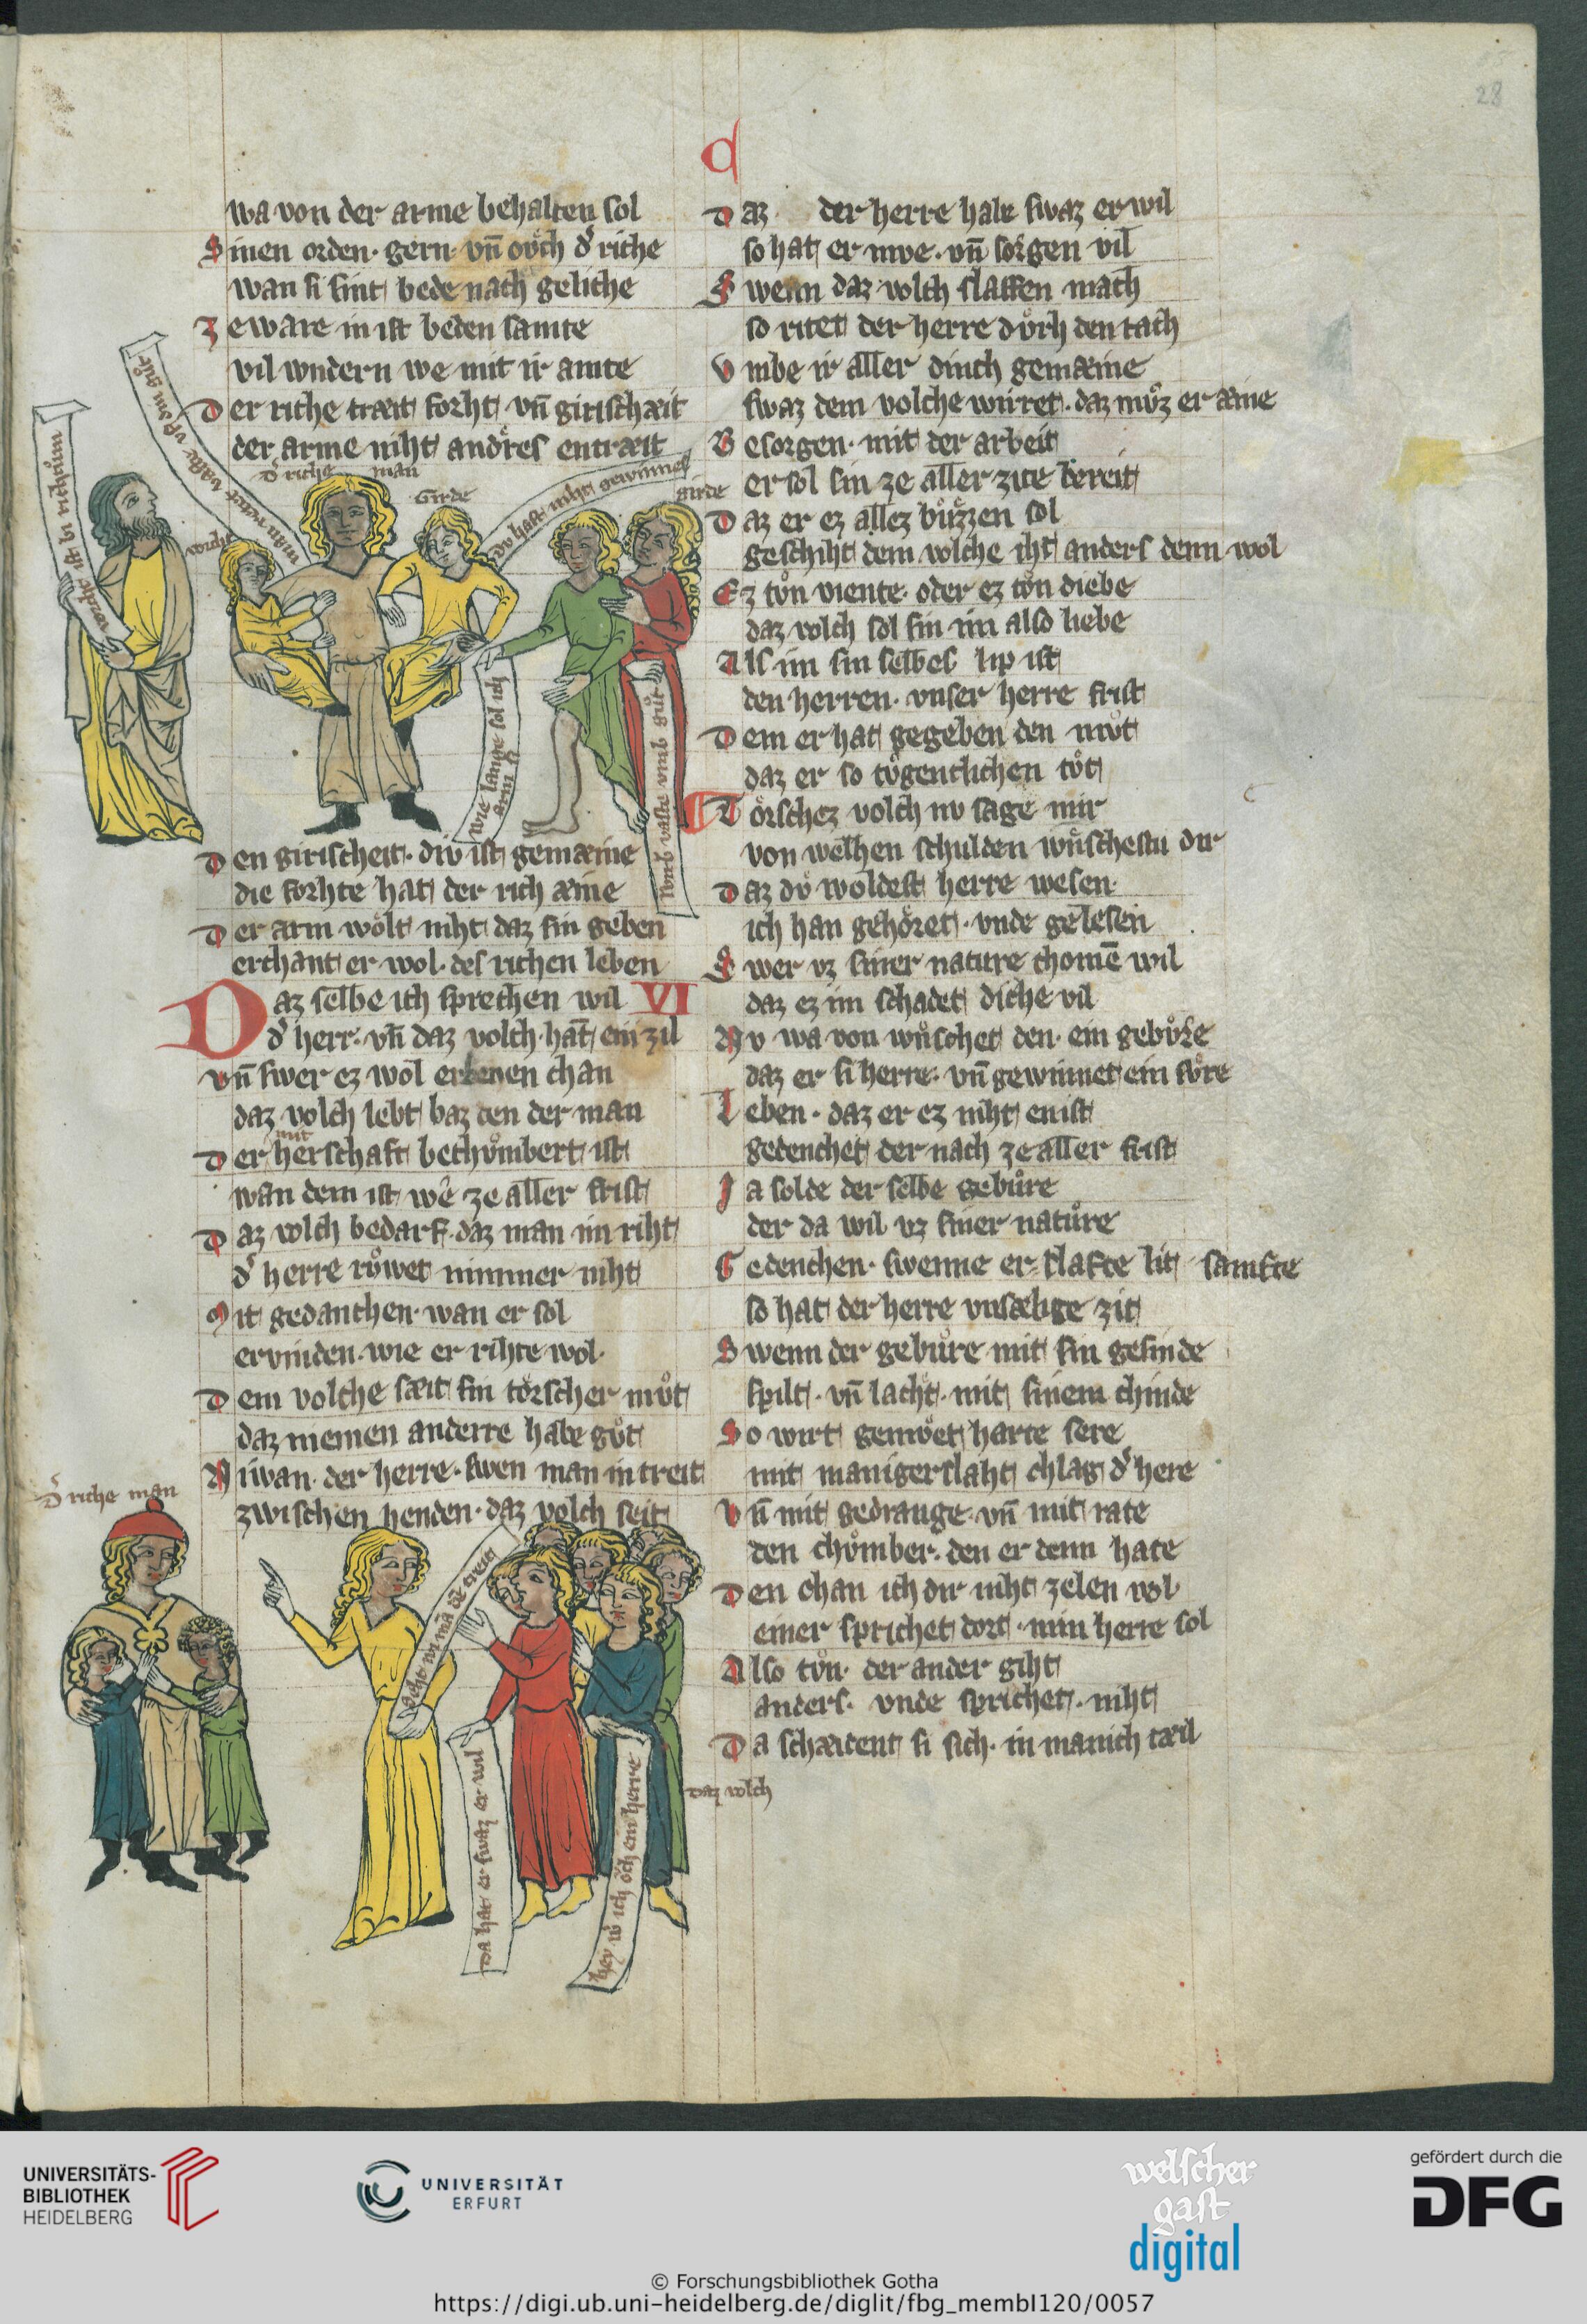 28
d
wa von der arme behalten sol
Sinen orden· gern· vn̄ oͮch dˢ riche
wan si sint bede nach geliche
Zeware in ist beden samte
vil wndern we mit ir amte
Der riche træit forht vn̄ girischæit
der arme niht andˢres entræit
dˢ riche man
Girde
girde
vorht
vorht ist bi richtům
du hast niht gewinnes
wie lange sol ich
arm
wirb vaste vmb gůt
Den girischeit· div ist gemæine
die forhte hat der rich æine
Der arm wolt niht daz sin geben
erchant er wol· des richen leben
Daz selbe ich sprechen wil VI
dˢ herr· vn̄ daz volch· hat ein zil
vn̄ swer ez wol erkenen chan
daz volch lebt baz den der man
Der mit herschaft bechůmbert ist
wan dem ist we ze aller frist
Daz volch bedarf· daz man im riht
dˢ herre růwet nimmer niht
Mit gedanchen· wan er sol
ervinden· wie er rihte wol·
Dem volche sæit sin torscher můt
daz niemen anderre habe gůt
Niwan· der herre· swen man in treit
zwischen henden· daz volch seit
dˢ riche man
da hat er swaz er wil
hey w ich och ein herre
daz volch
Daz der herre habe swaz er wil
so hat er mve· vn̄ sorgen vil
Swenn daz volch slaffen mach
so ritet der herre dvrch den tach
Vmbe ir aller dinch gemæine
swaz dem volche wirret· daz můz er æine
Besorgen· mit der arbeit
er sol sin ze aller zite bereit
Daz er ez allez bůzzen sol
geschiht dem volche iht anders denn wol
Ez tůn viente· oder ez tůn diebe
daz volch sol sin im also liebe
Als im sin selbes lip ist
den herren· vnser herre frist
Dem er hat gegeben den můt
daz er so tvgentlichen tůt
Torschez volch nv sage mir
von welhen schulden wůschestu dir
Daz dv woldest herre wesen·
ich han gehöret· vnde gelesen
Swer vz siner nature chomē wil
daz ez im schadet diche vil
Nv wa von wůschet den· ein gebůre
daz er si herre· vn̄ gewinnet ein svre
Leben· daz er ez niht enist
gedenchet der nach ze aller frist
Ja solde der selbe gebůre
der da wil vz siner natůre
Gedenchen· swenne er slafte lit samfte
so hat der herre vnsælige zit
Swenn der gebůre mit sin gesinde
spilt· vn̄ lachet· mit sinem chinde
So wirt gemvet harte sere
mit manigerslaht chlag dˢ here
Vn̄ mit gedrange· vn̄ mit rate
den chůmber· den er denn hate
Den chan ich dir niht zelen wol
einer sprichet dort· min herre sol
Also tůn· der ander giht
anders· vnde sprichet· niht
Da schæident si sich· in manich tæil
UNIVERSITÄTS-
BIBLIOTHEK
HEIDELBERG
UNIVERSITÄT
ERFURT
welscher
gast
digital
gefördert durch die
DFG
© Forschungsbibliothek Gotha
https://digi.ub.uni-heidelberg.de/diglit/fbg_membI120/0057